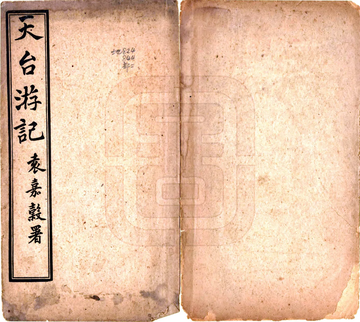 天台游記
袁嘉穀署